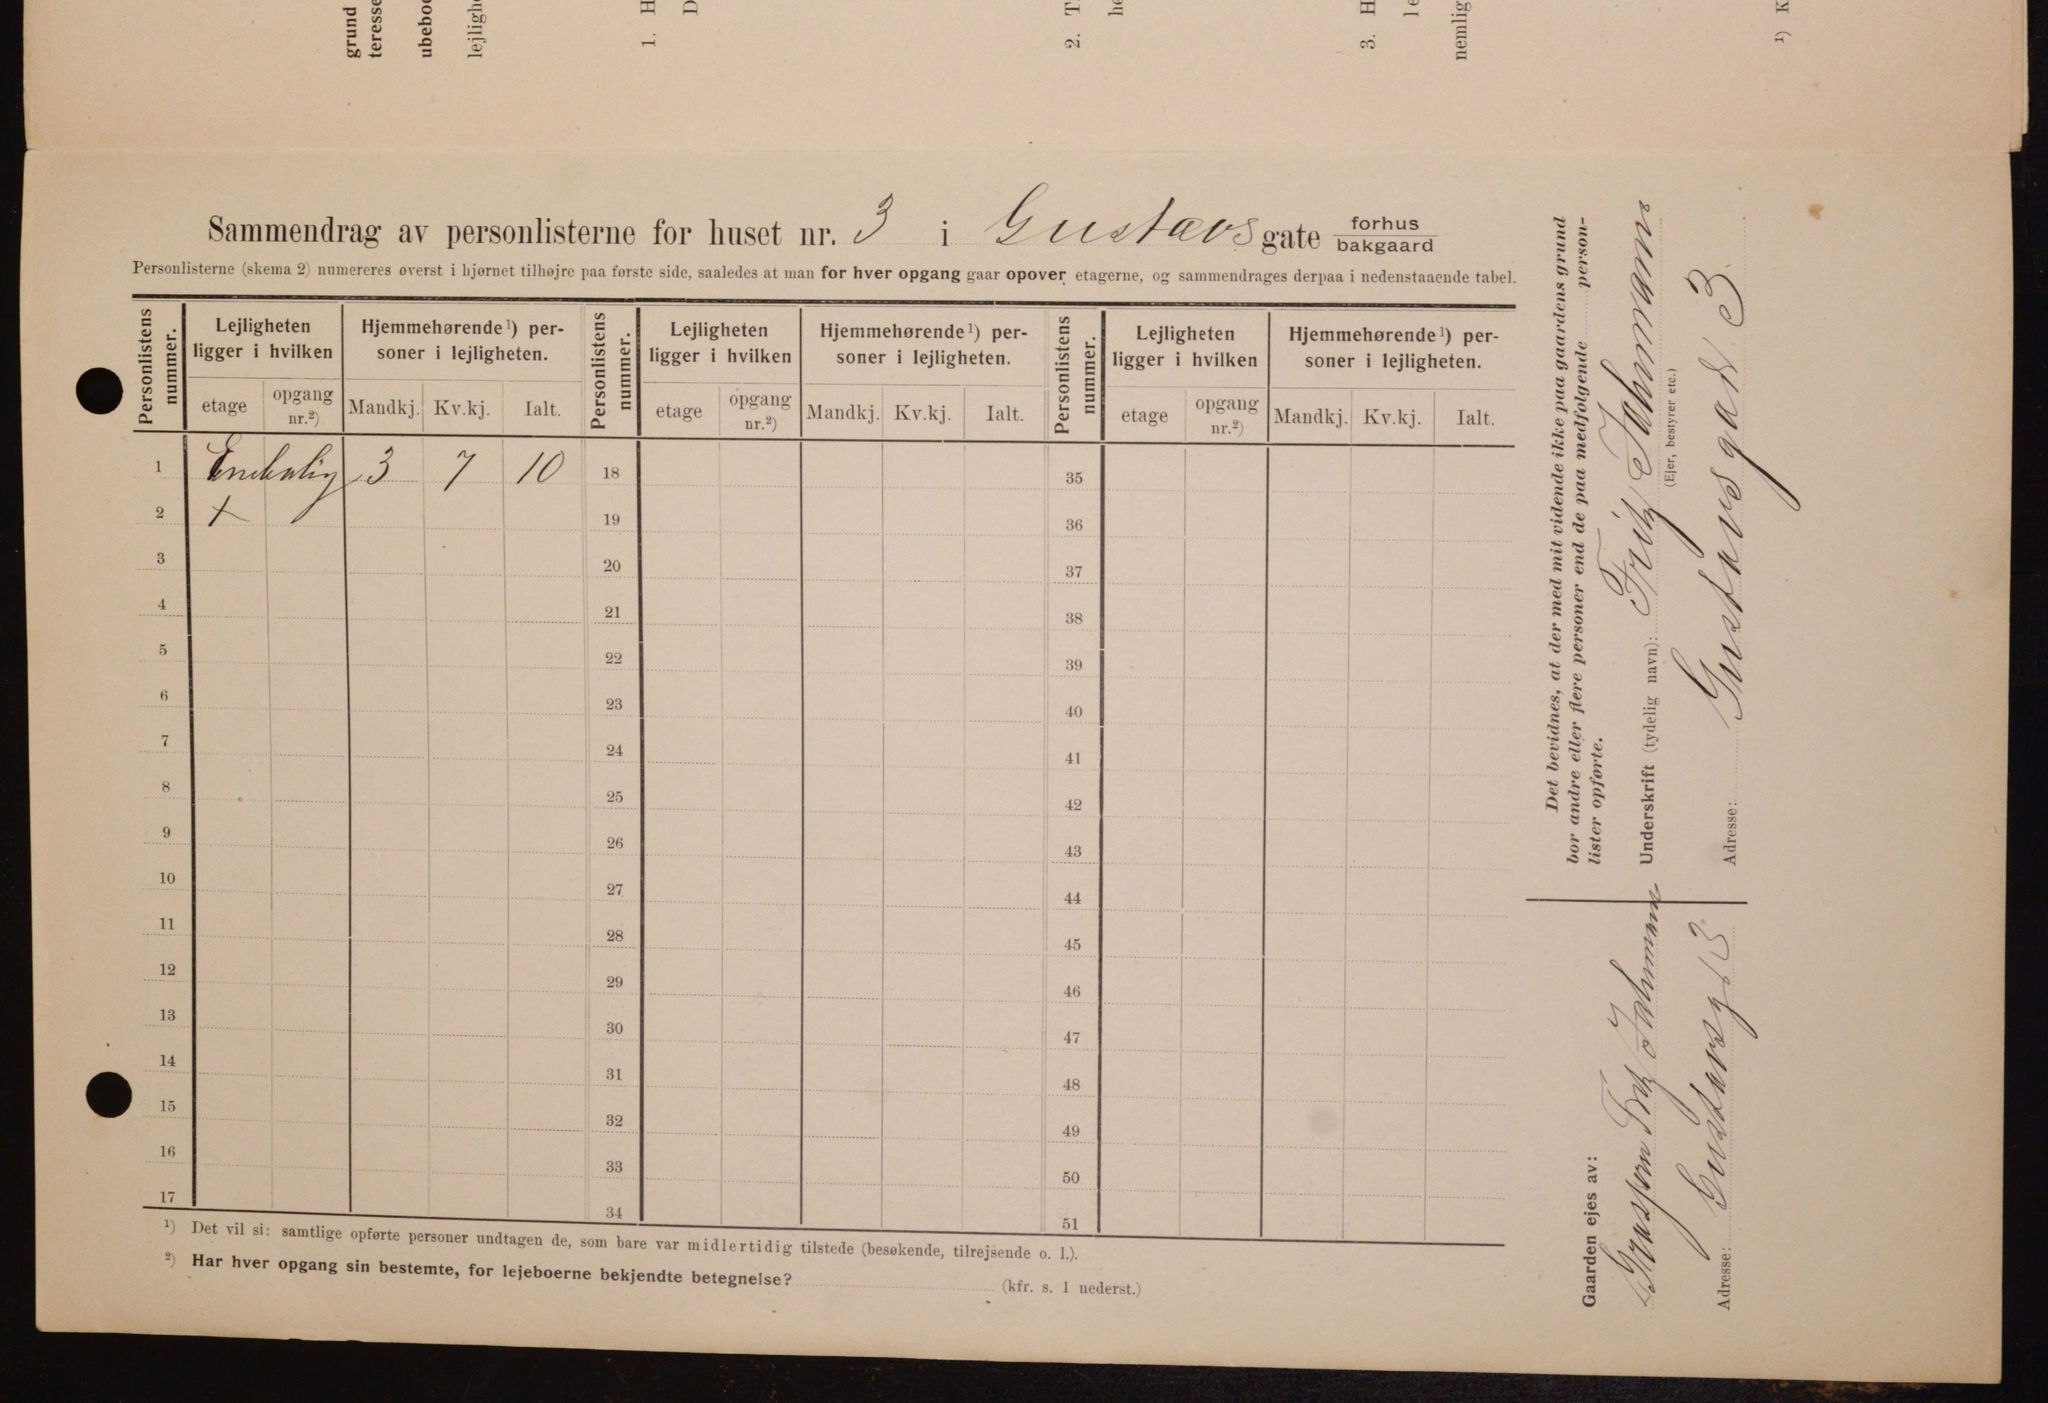 grund
teresse
ubeboe
lejlighe
1. H
D
2. T
he
3. H
le
nemlig
1) K
Sammendrag av personlisterne for huset nr. 3 i Gustavs gate forhus
bakgaard
Personlisterne (skema 2) numereres øverst i hjørnet tilhøjre paa første side, saaledes at man for hver opgang gaar opover etagerne, og sammendrages derpaa i nedenstaaende tabel.
Personlistens nummer. Lejligheten ligger i hvilken Hjemmehørende 1) personer i lejligheten. Personlistens nummer. Lejligheten ligger i hvilken Hjemmehørende 1) personer i lejligheten. Personlistens nummer. Lejligheten ligger i hvilken Hjemmehørende 1) personer i lejligheten.
etage opgang nr. 2) Mandkj. Kv.kj. Ialt. etage opgang nr. 2) Mandkj. Kv.kj. Ialt. etage opgang nr. 2) Mandkj. Kv.kj. Ialt.
1 Enebolig 3 7 10 18 35
2 + 19 36
3 20 37
4 21 38
5 22 39
6 23 40
7 24 41
8 25 42
9 26 43
10 27 44
11 28 45
12 29 46
13 30 47
14 31 48
15 32 49
16 33 50
17 34 51
1) Det vil si: samtlige opførte personer undtagen de, som bare var midlertidig tilstede (besøkende, tilrejsende o. l.).
2) Har hver opgang sin bestemte, for lejeboerne bekjendte betegnelse? (kfr. s. 1 nederst.)
Det bevidnes, at der med mit vidende ikke paa gaardens grund
bor andre eller flere personer end de paa medfølgende person-
lister opførte.
Underskrift (tydelig navn): Fritz Jahrmann
(Ejer, bestyrer etc.)
Adresse: Gustavsgade 3
Gaarden ejes av:
Fritz
Adresse: Gustavsgt 3